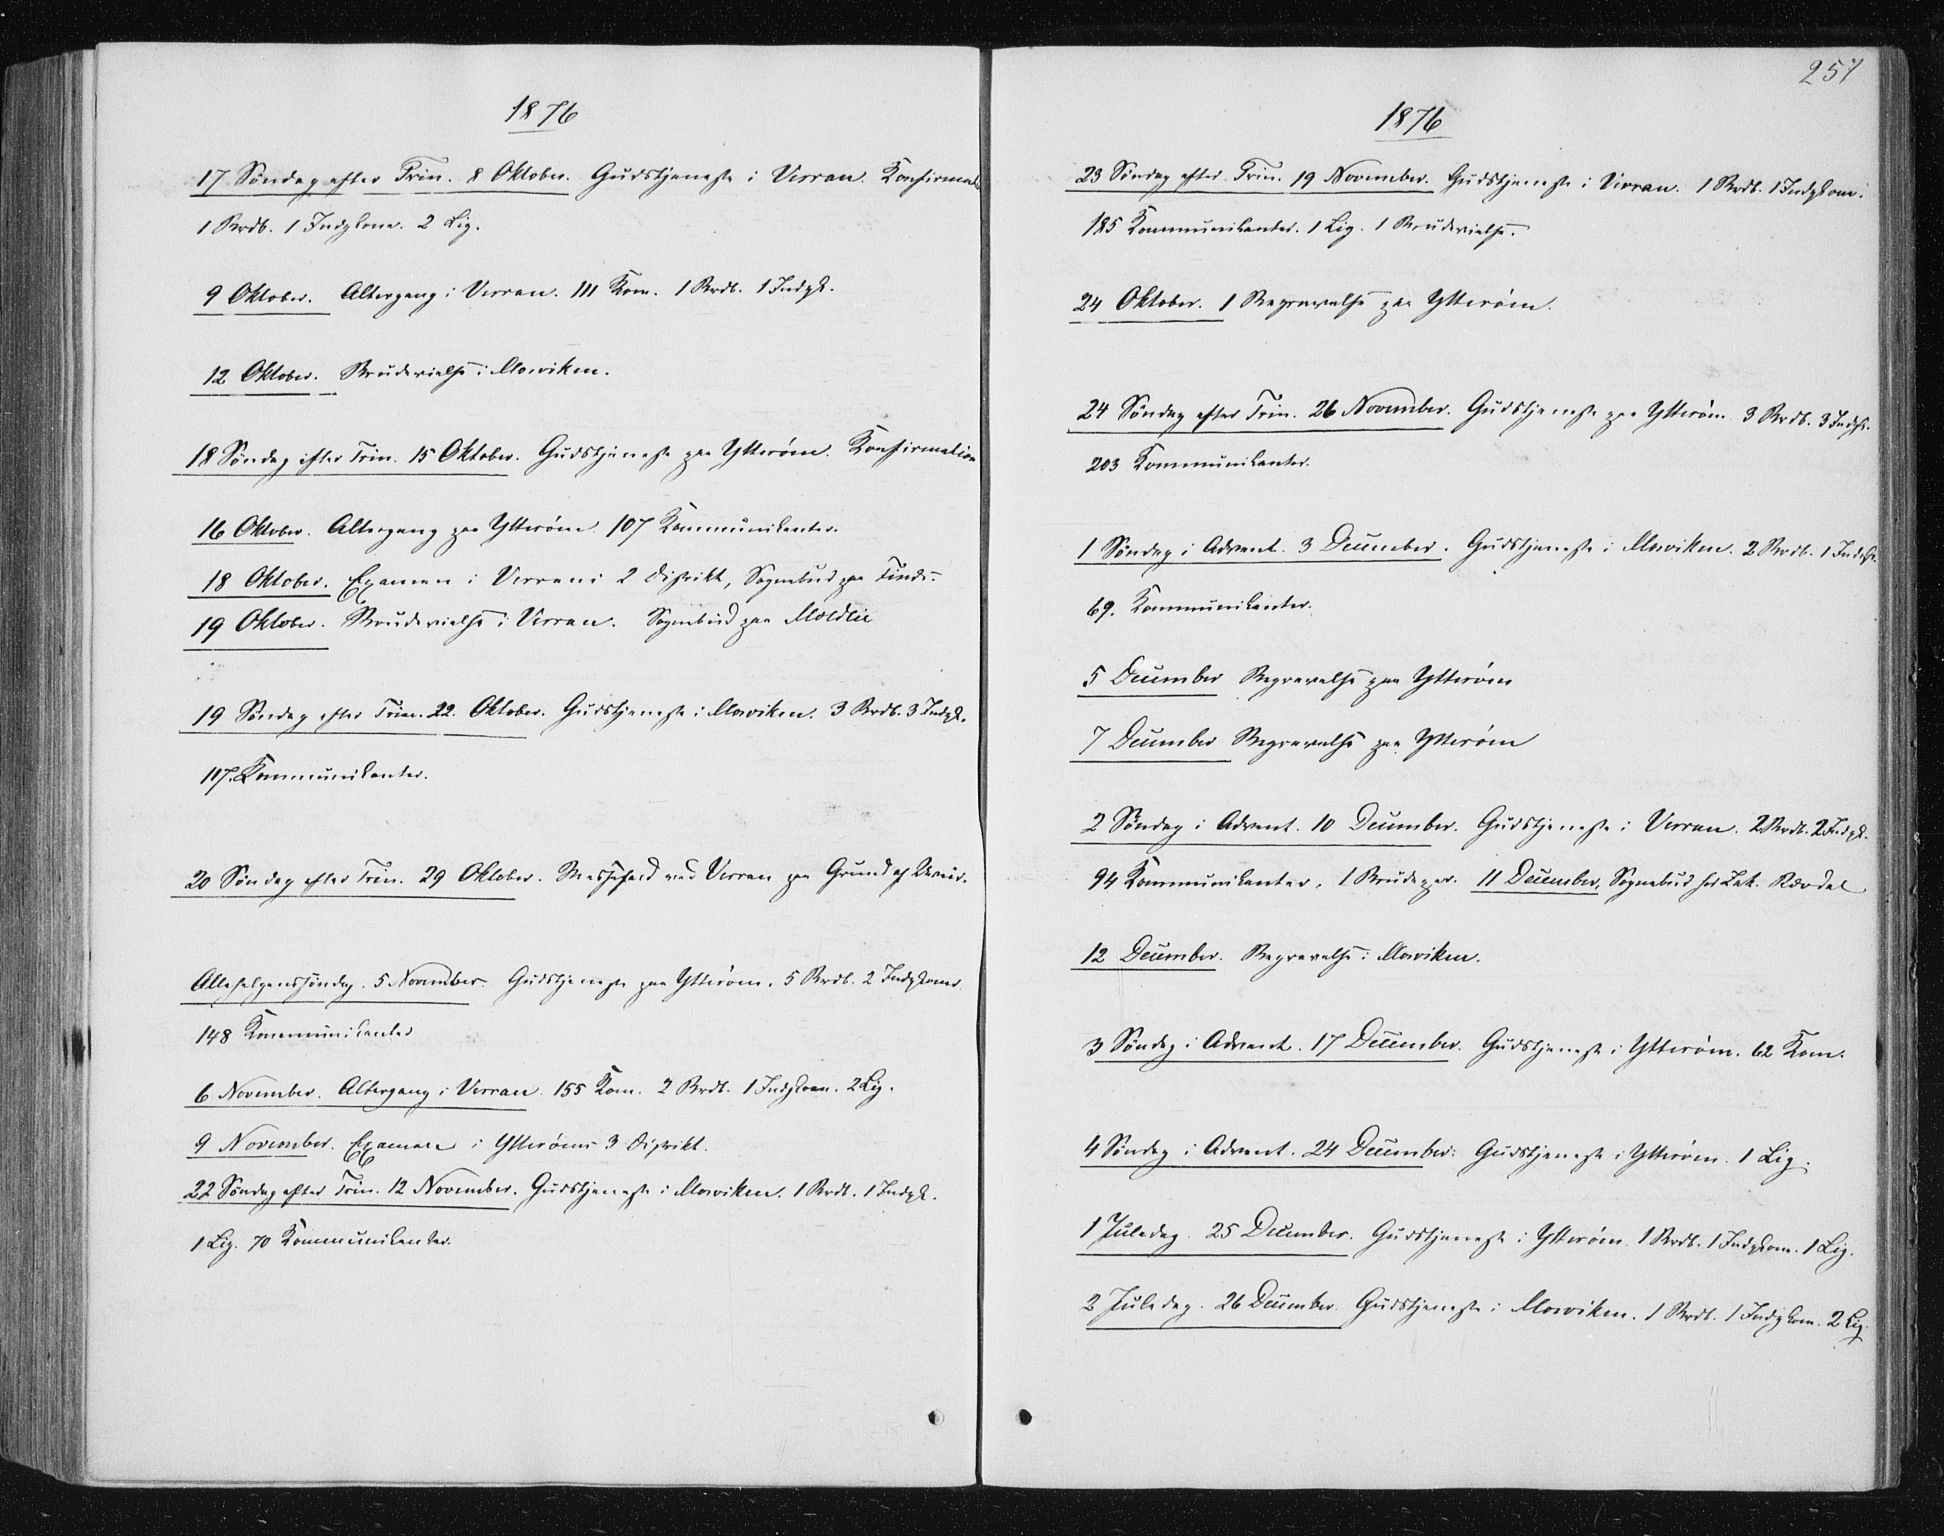 1876
17 Søndag efter Trin. 8 Oktober. Gudstjeneste i Verran. Konfirmat
1 Brdb. 1 Indgkone. 2 Lig.
9 Oktober. Altergang i Verran. 111 Kom. 1 Brdb. 1 Indgk.
12 Oktober. Brudevielse i Mosviken.
18 Søndag efter Trin. 15 Oktober. Gudstjeneste paa Ytterøen. Konfirmation
16 Oktober. Altergang paa Ytterøen 107 Kommunikanter.
18 Oktober. Examen i Verrens 2 Distrikt, Sognebud paa
19 Oktober. Brudevielse i Verran. Sognebud paa Moldlie
19 Søndag efter Trin. 22. Oktober. Gudstjeneste i Mosviken. 3 Brdb. 3 Indgk.
117. Kommunikanter.
20 Søndag efter Trin. 29 Oktober. Messefald ved Verran paa Grund af Uveir.
Allehelgenssøndag. 5 November. Gudstjeneste paa Ytterøen. 5 Brdb. 2 Indgkoner.
148 Kommunikanter
6 November. Altergang i Verran. 155 Kom. 2 Brdb. 1 Indgkone. 2 Lig.
9 November. Examen i Ytterøens 3 Distrikt.
22 Søndag efter Trin. 12 November. Gudstjeneste i Mosviken. 1 Brdb. 1 Indgk.
1 Lig. 70 Kommunikanter.
257
1876
23 Søndag efter Trin. 19 November. Gudstjeneste i Verran. 1 Brdb. 1 Indgkone.
185 Kommunikanter. 1 Lig. 1 Brudevielse.
24 Oktober. 1 Begravelse paa Ytterøen.
24 Søndag efter Trin. 26 November. Gudstjeneste paa Ytterøen 3 Brdb. 3 Indgk.
203 Kommunikanter.
1 Søndag i Advent. 3 December. Gudstjeneste i Mosviken. 2 Brdb. 1 Indgk.
69. Kommunikanter.
5 December Begravelse paa Ytterøen
7 December Begravelse paa Ytterøen
2 Søndag i Advent. 10 December. Gudstjeneste i Verran. 2 Brdb. 2 Indgk.
94 Kommunikanter. 1 Brudepar. 11 December, Sognebud hos Zak. Rørdal
12 December. Begravelse i Mosviken.
3 Søndag i Advent. 17 December. Gudstjeneste i Ytterøen. 62 Kom.
4 Søndag i Advent. 24 December. Gudstjeneste i Ytterøen. 1 Lig.
1 Juledag. 25 December. Gudstjeneste i Ytterøen. 1 Brdb. 1 Indgkone. 1 Lig.
2 Juledag. 26 December. Gudstjeneste i Mosviken. 1 Brdb. 1 Indgkone. 2 Lig.